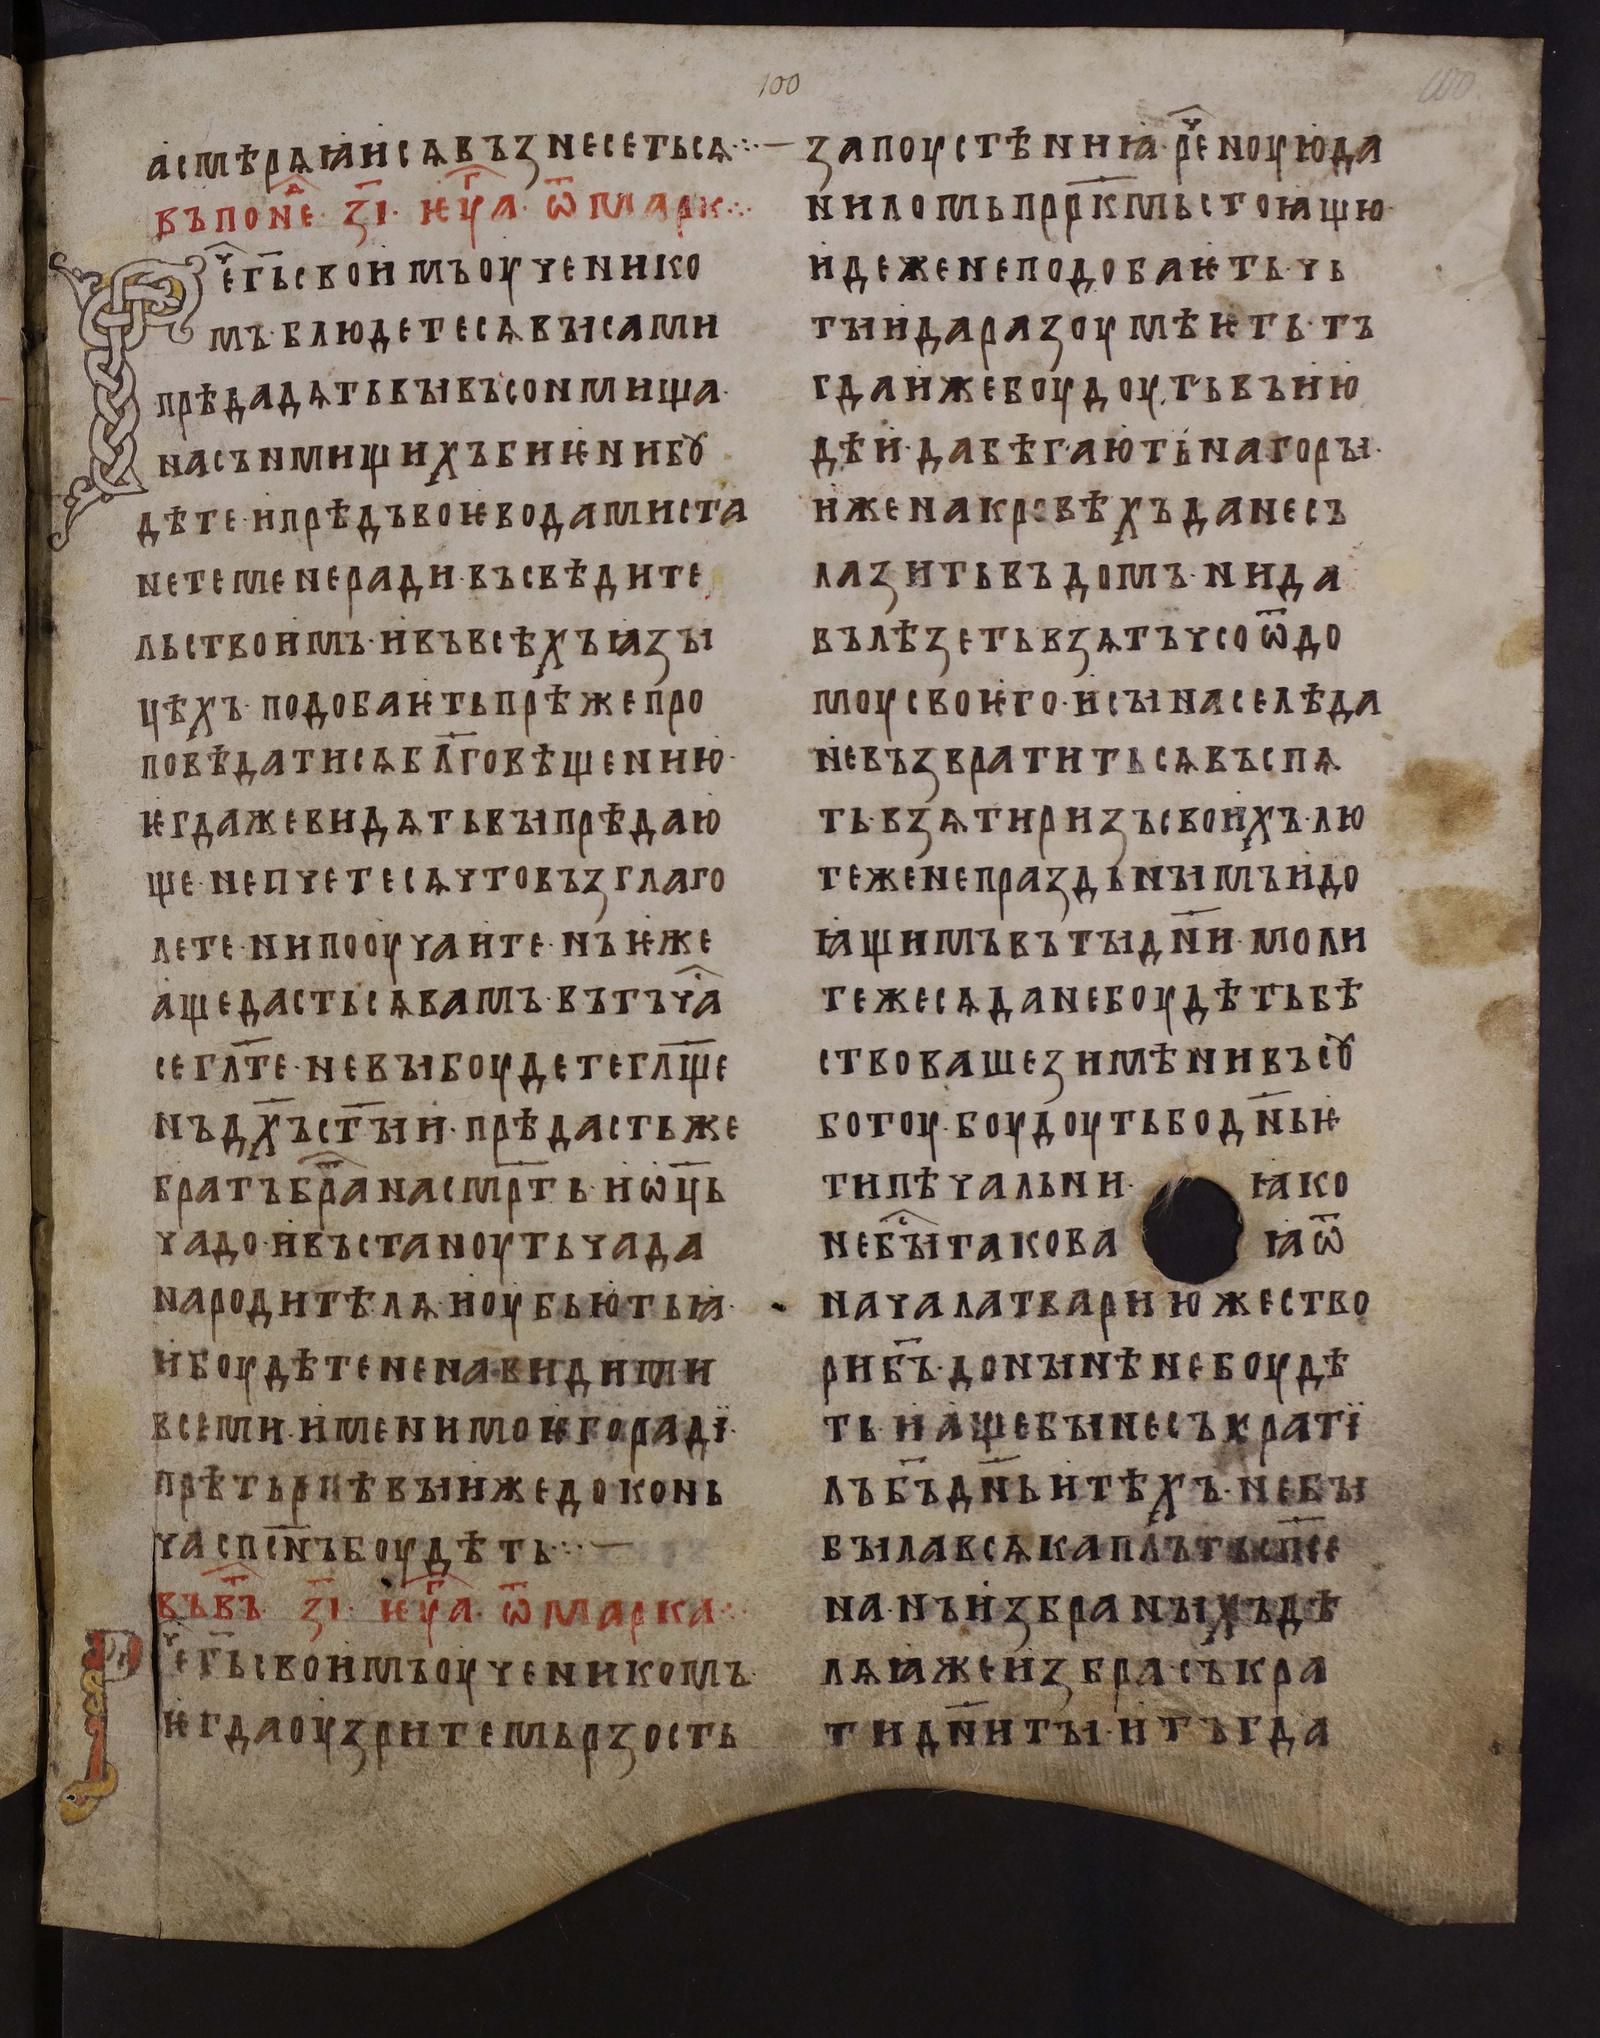 100
асмѣрѧꙗисѧвъзнесетьсѧ·:·—
въпонⷣе· з҃і· ѥцⷢ҇а· ѿ марк·:·
Рⷱ҇ег҃ьсвоимъоученико
мъ·блюдетесѧвꙑсами
прѣдадѧтьвꙑвъсонмища·
насънмищихъбиѥнибꙋ
дѣте·ипрѣдъвоѥводамиста
нетеменеради·въсвѣдите
льствоимъ·ивъвсѣхъꙗзꙑ
цѣхъ·подобаѥтьпрѣжепро
повѣдатисѧбл҃говѣщению·
ѥгдажевидѧтьвꙑпрѣдаю
ще·непчетесѧчтовъзглаго
лете·нипооучаите·нъѥже
ащедастьсѧвамъ·вътъчⷭ҇а
сегл҃те·невꙑбоудетегл҃ще
нъдх҃ъст҃ꙑи·прѣдастьже
братъбрⷮанасмр҃ть·иѡц҃ь
чадо·ивъстаноутьчада
народитѣлѧ·иоубьютьꙗ·
ибоудѣтененавидими
всеми·именимоѥгорадї·
прѣтьрпѣвꙑижедоконь
часпс҃нъбоудѣть·:·—
въвⷮ· з҃і· ѥцⷢ҇а· ѿ марка·:·
Рⷱ҇ег҃ьсвоимъоученикомъ·
ѥгдаоузритемьрзость
запоустѣниꙗ·рⷱ҇еноуюда
ниломьпрр҃кмьстоꙗщю·
идеженеподобаѥть·чь
тꙑидаразоумѣѥть·тъ
гдаижебоудоутьвъию
дѣи·дабѣгаютьнагорꙑ·
иженакровѣхъданесъ
лазитьвъдомъ·нида
вълѣзетьвзѧтъчсоѿдо
моусвоѥго·исꙑнаселѣда
невъзвратитьсѧвъспѧ
ть·взѧтиризъсвоихъ·лю
теженепраздьнꙑмъидо
ꙗщимъвътꙑдн҃и·моли
тежесѧданебоудѣтьбѣ
ствовашезимѣнивъсꙋ
ботоу·боудоутьбодн҃ьѥ
типѣчальни· ꙗко
небꙑⷭ҇такова ꙗѿ
началатвариюжество
риб҃ъ·донꙑнѣнебоудѣ
ть·иащебꙑнесъкратї
лъб҃ъдн҃ьитѣхъ·небꙑ
бꙑлавсѧкаплътьсп҃се
на·нъизбранꙑхъдѣ
лѧꙗжеизбрасъкра
тидн҃итꙑ·итъгда